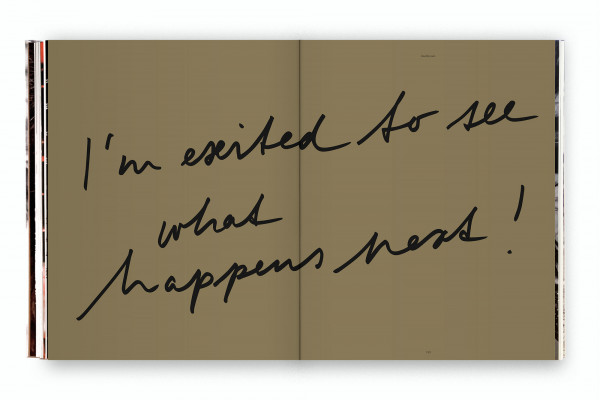 I'm exited to see
what
happens next!